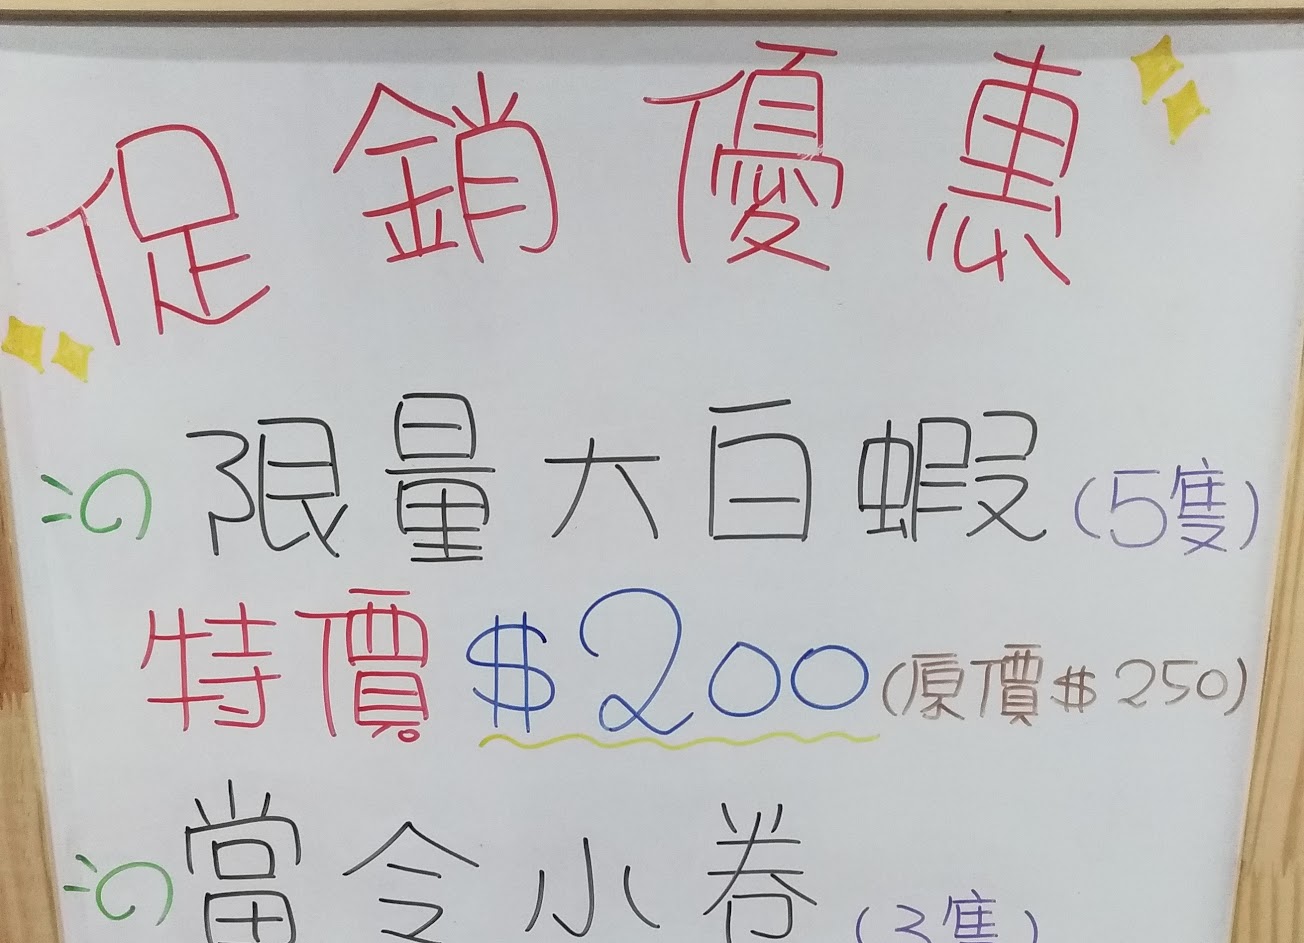 促銷優惠
限量大白蝦(5隻)
特價$200(原價$250)
當令小卷(3隻)